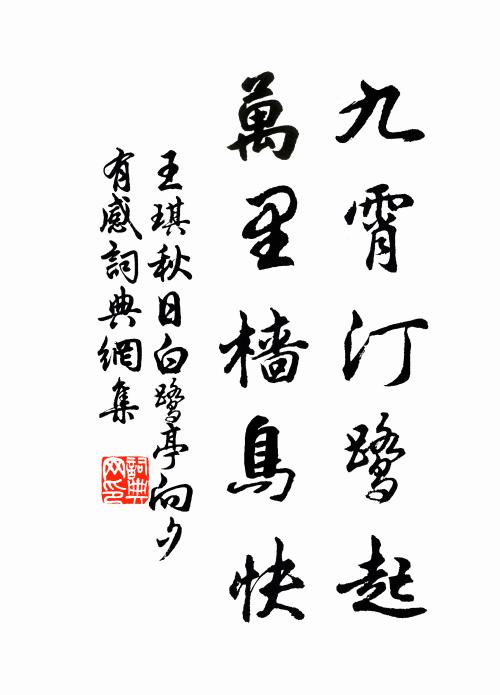 九霄汀鹭起
萬里檣烏快
王琪秋日白鹭亭向夕
有感詞典網集
詞典網印